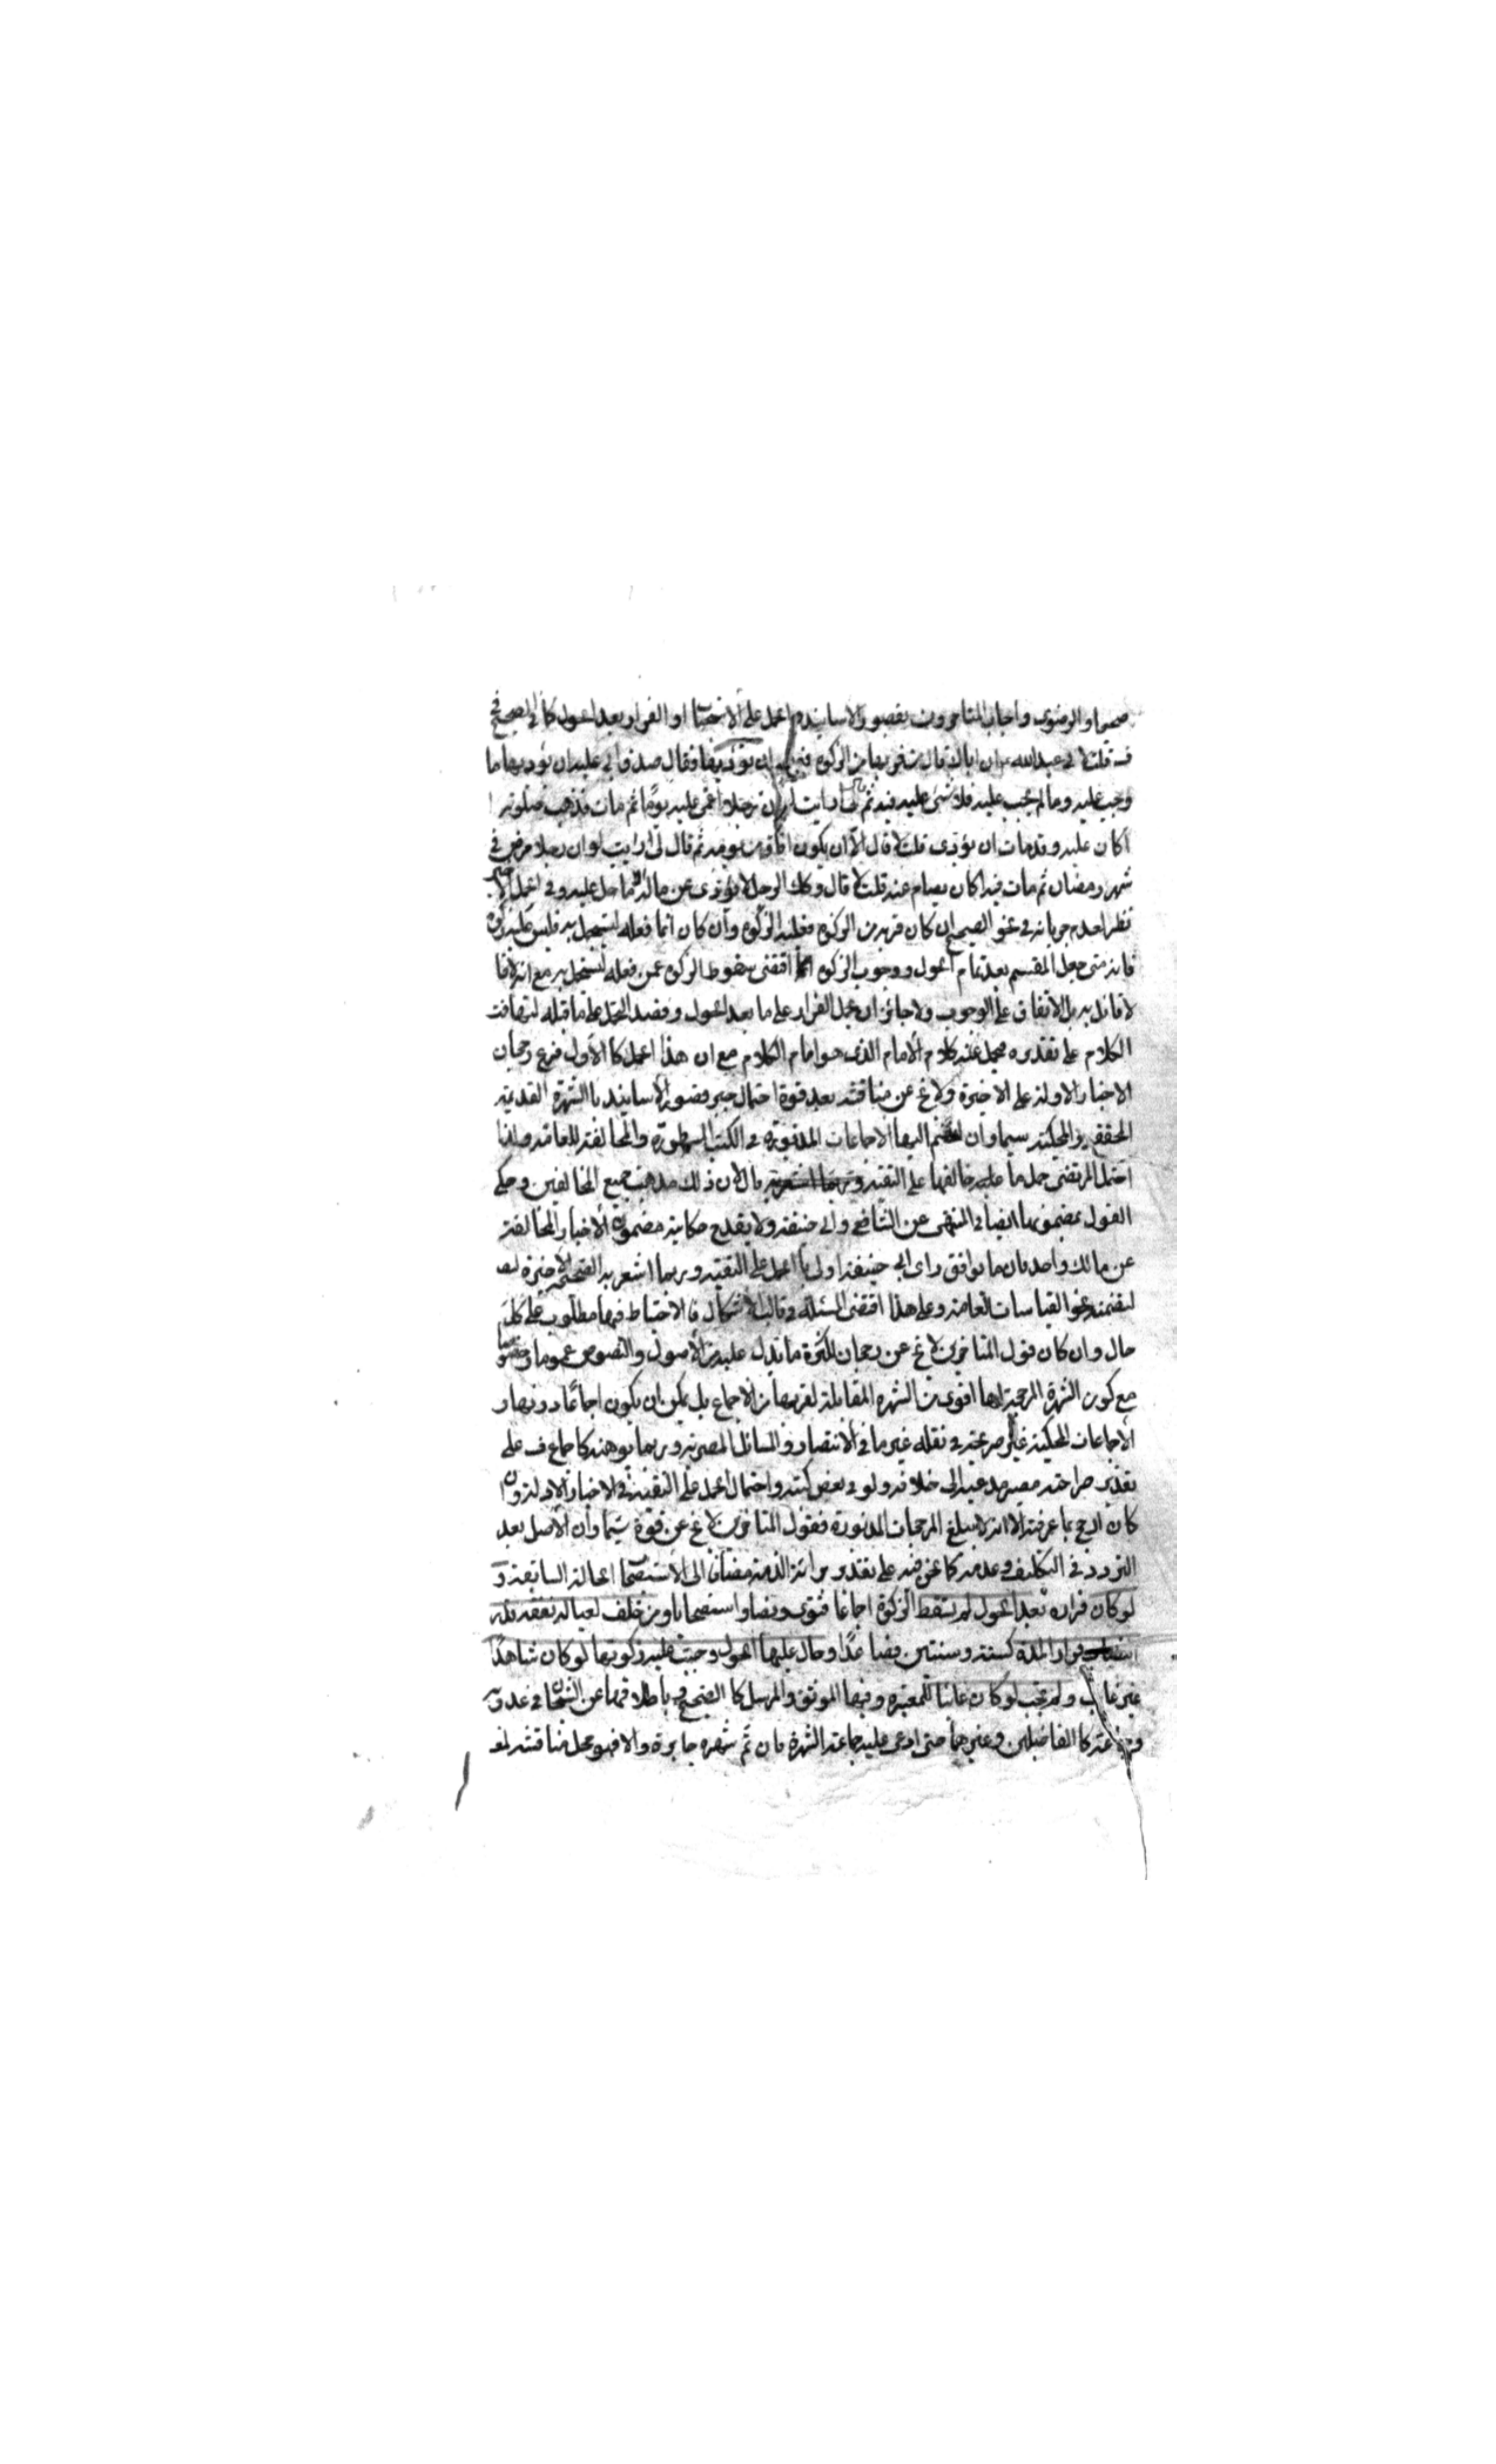 والرضوي واجاب المتاخرون بقصور الاسانيد والحمل على الاستحباب او الفرار بعد الحول كما في الصحيح
قلت لابي عبد الله ان اباك قال من فر بها من الزكوة فعليه ان يؤديها فقال صدق ابي عليه ان يؤدي ما
وجب عليه وما لم يجب عليه فلا شئ عليه فيه ثم قال ارايت لو ان رجلا اغمى عليه يوما ثم مات فذهب صلوته
اكان عليه وقد مات ان يؤدى قلت لا قال الا ان يكون افاق من يومه ثم قال لى ارايت لو ان رجلا مرض في
شهر رمضان ثم مات فيه اكان يصام عنه قلت لا قال وكك الرجل لا يؤدى عن ماله الا ما حل عليه وفي الحمل الاخير
نظر لعدم جريانه في نحو الصحيح ان كان فر به من الزكوة فعليه الزكوة وان كان انما فعله ليتجمل به فليس عليه زكوة
فانه متى جعل المقسم بعد تمام الحول ووجوب الزكوة اقتضى سقوط الزكوة عمن فعله ليتجمل به مع انه
لا قائل به بل الاتفاق على الوجوب ولا جائز ان يحمل الفرار على ما بعد الحول وقصد التجمل على ما قبله لتهافت
الكلام على تقديره يجل عنه كلام الامام الذى هو امام الكلام مع ان هذا الحمل كالاول فرع رجحان
الاخبار الاولة على الاخيرة ولا يخ عن مناقشه بعد قوة احتمال جبر قصور الاسانيد بالشهرة القديمة
المحققة والمحكية سيما وان انضم اليها الاجماعات المذكورة في الكتب المسطورة والمخالفة للعامة ولذا
احتمل المرتضى حمل ما خالفها على التقية قال لان ذلك مذهب جميع المخالفين وحكى
القول بمضمونها ايضا في المنتهى عن الشافعي وابي حنيفة ولا يقدح حكاية مضمون الاخبار المخالفة
عن مالك واحمد فان ما يوافق راى ابي حنيفة اولى بالحمل على التقية وربما اشعر به الصحيحة الاخيرة
لتضمنه نحو القياسات العامة وعلى هذا اقتضى المسئلة في قالب الاشكال فالاحتياط فيها مطلوب على كل
حال وان كان قول المتاخرين لا يخ عن رجحان لكثرة ما يدل عليه من الاصول والنصوص عموما وخصوصا
مع كون الشهرة المرجحة لها اقوى من الشهرة المقابلة لقربها من الاجماع بل يمكن ان يكون اجماعا دونها و
الاجماعات المحكية غير صريحة في نقله غير ما في الانتصار والمسائل المصرية وربما يوهنه كاجماع ف على
تقدير صراحته مصير مدعيه الى خلافه ولو في بعض كتبه واحتمال الحمل على التقية في الاخبار الاولة وان
كان ارجح بما عرفته الا انه لا يبلغ المرجحات المذكورة فقول المتاخرين لا يخ عن قوة سيما وان الاصل بعد
التردد في التكليف وعدمه كما نحن فيه على تقدير برائة الذمة مضافا الى الاستصحاب الحالة السابقة و
لو كان فراره بعد الحول لم يسقط الزكوة اجماعا فتوى ونصا واستصحابا ومن خلف لعياله نفقة قدر
المدة كسنة وسنتين فصاعدا وحال عليها الحول وجبت عليه زكوتها لو كان شاهدا
غير غائب ولم تجب لو كان غائبا للمعتبرة وفيها الموثق والمرسل كالصحيح وباطلاقها عن الشيخان في عدة
وجماعة كالفاضلين وغيرهما حتى ادعى عليه جماعة الشهرة فان تم شهرة جابرة والا فهو محل مناقشة